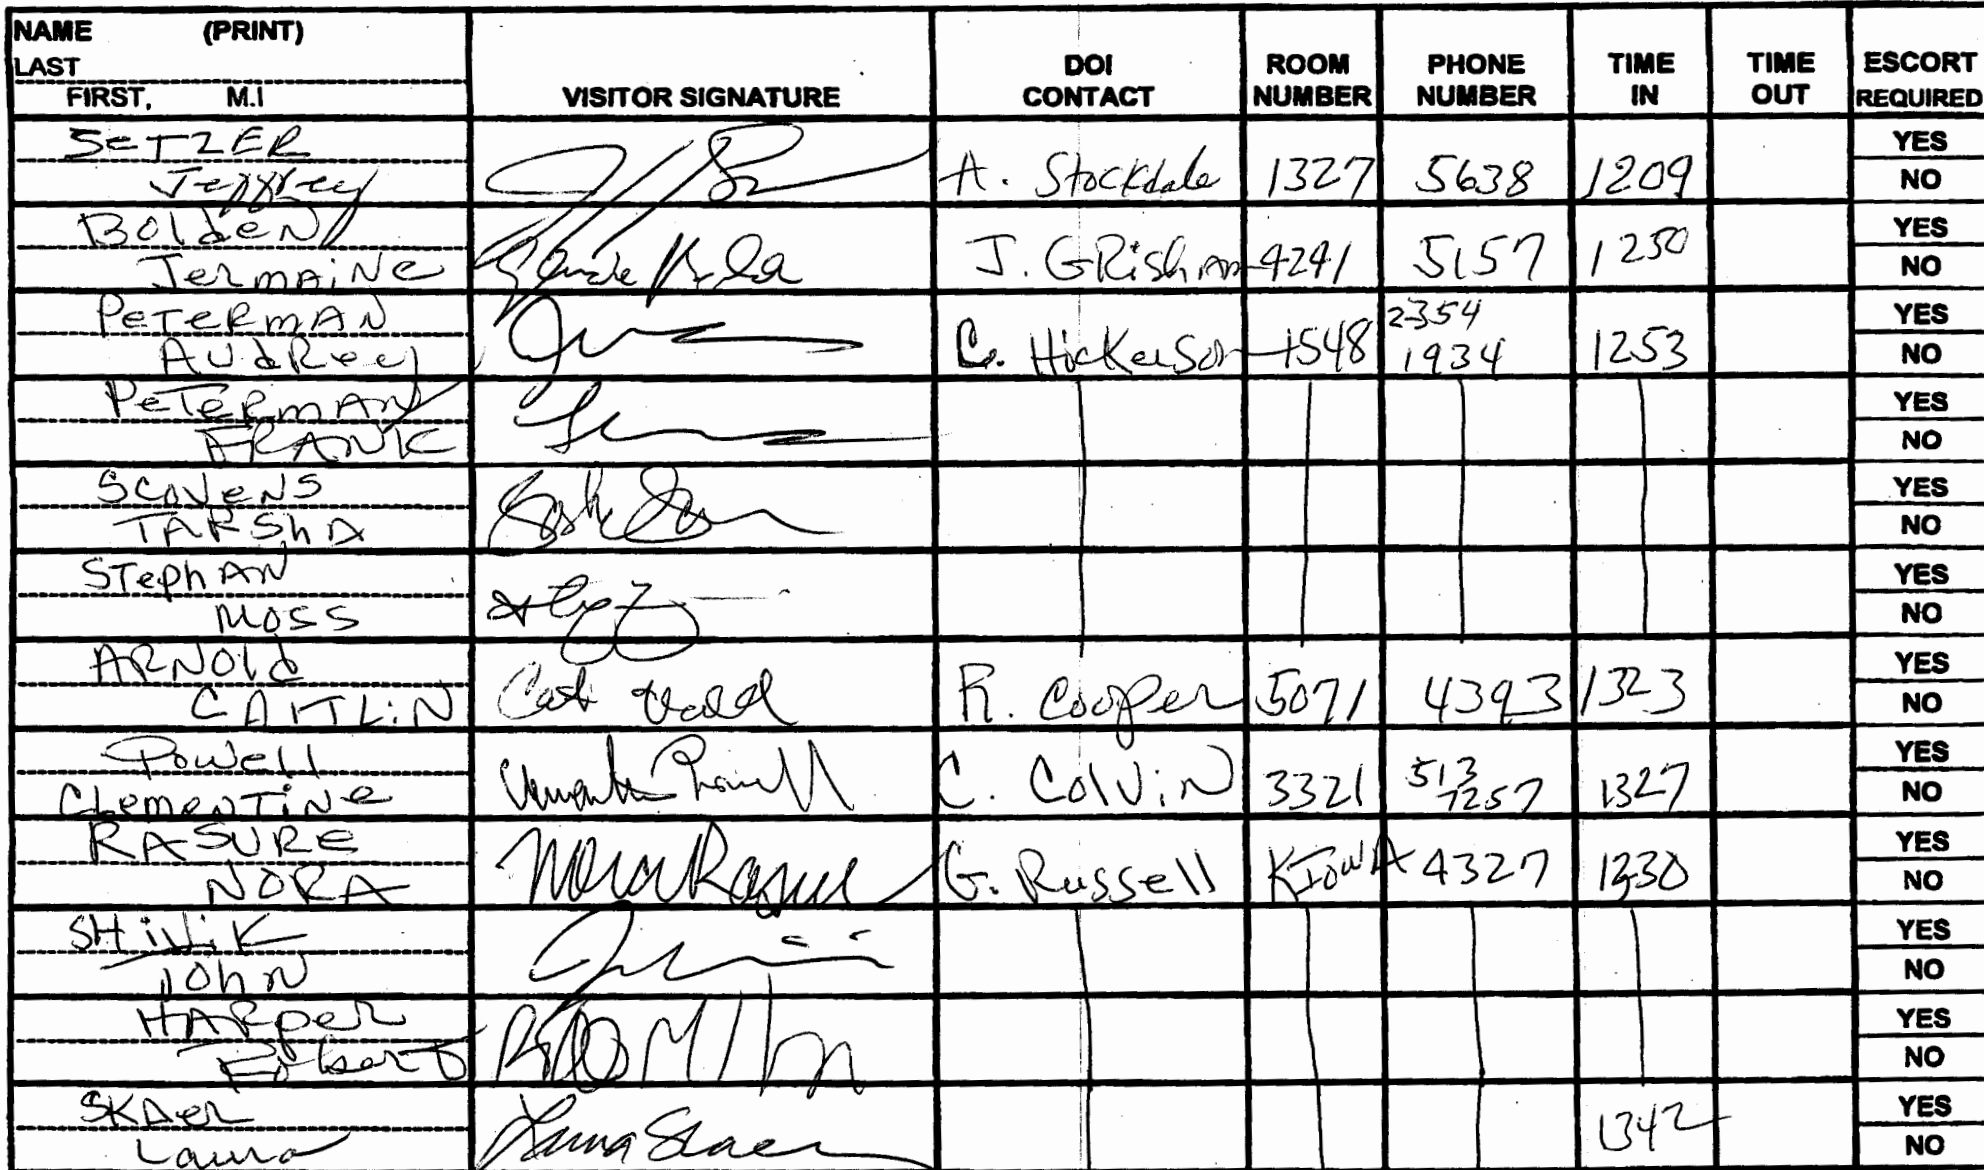 NAME (PRINT)
LAST
FIRST, M.I
VISITOR SIGNATURE
DOI CONTACT
ROOM NUMBER
PHONE NUMBER
TIME IN
TIME OUT
ESCORT REQUIRED
SETZER
Jeffrey
A. Stockdale 1327 5638 1209
YES
NO
BOldeN
JermaiNe
J. GRisham 4241 5157 1250
YES
NO
PeTeRmAN
AUdRey
C. HicKerson 1548 2354 1934 1253
YES
NO
PeTeRmAN
FRANK
YES
NO
SCOVeNS
TARShA
YES
NO
STephAN
MOSS
YES
NO
ARNOld
CAITLiN
R. Cooper 5071 4393 1323
YES
NO
Powell
ClemenTiNe
C. ColViN 3321 513 7257 1327
YES
NO
RASURE
NORA
Nora Rasure
G. Russell KIOWA 4327 1330
YES
NO
SHiViK
JOhN
YES
NO
HARper
YES
NO
SKAer
Laura
Laura Skaer
1342
YES
NO